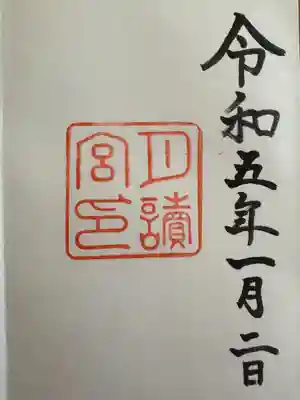 令和五年一月二日
月讀
宮印